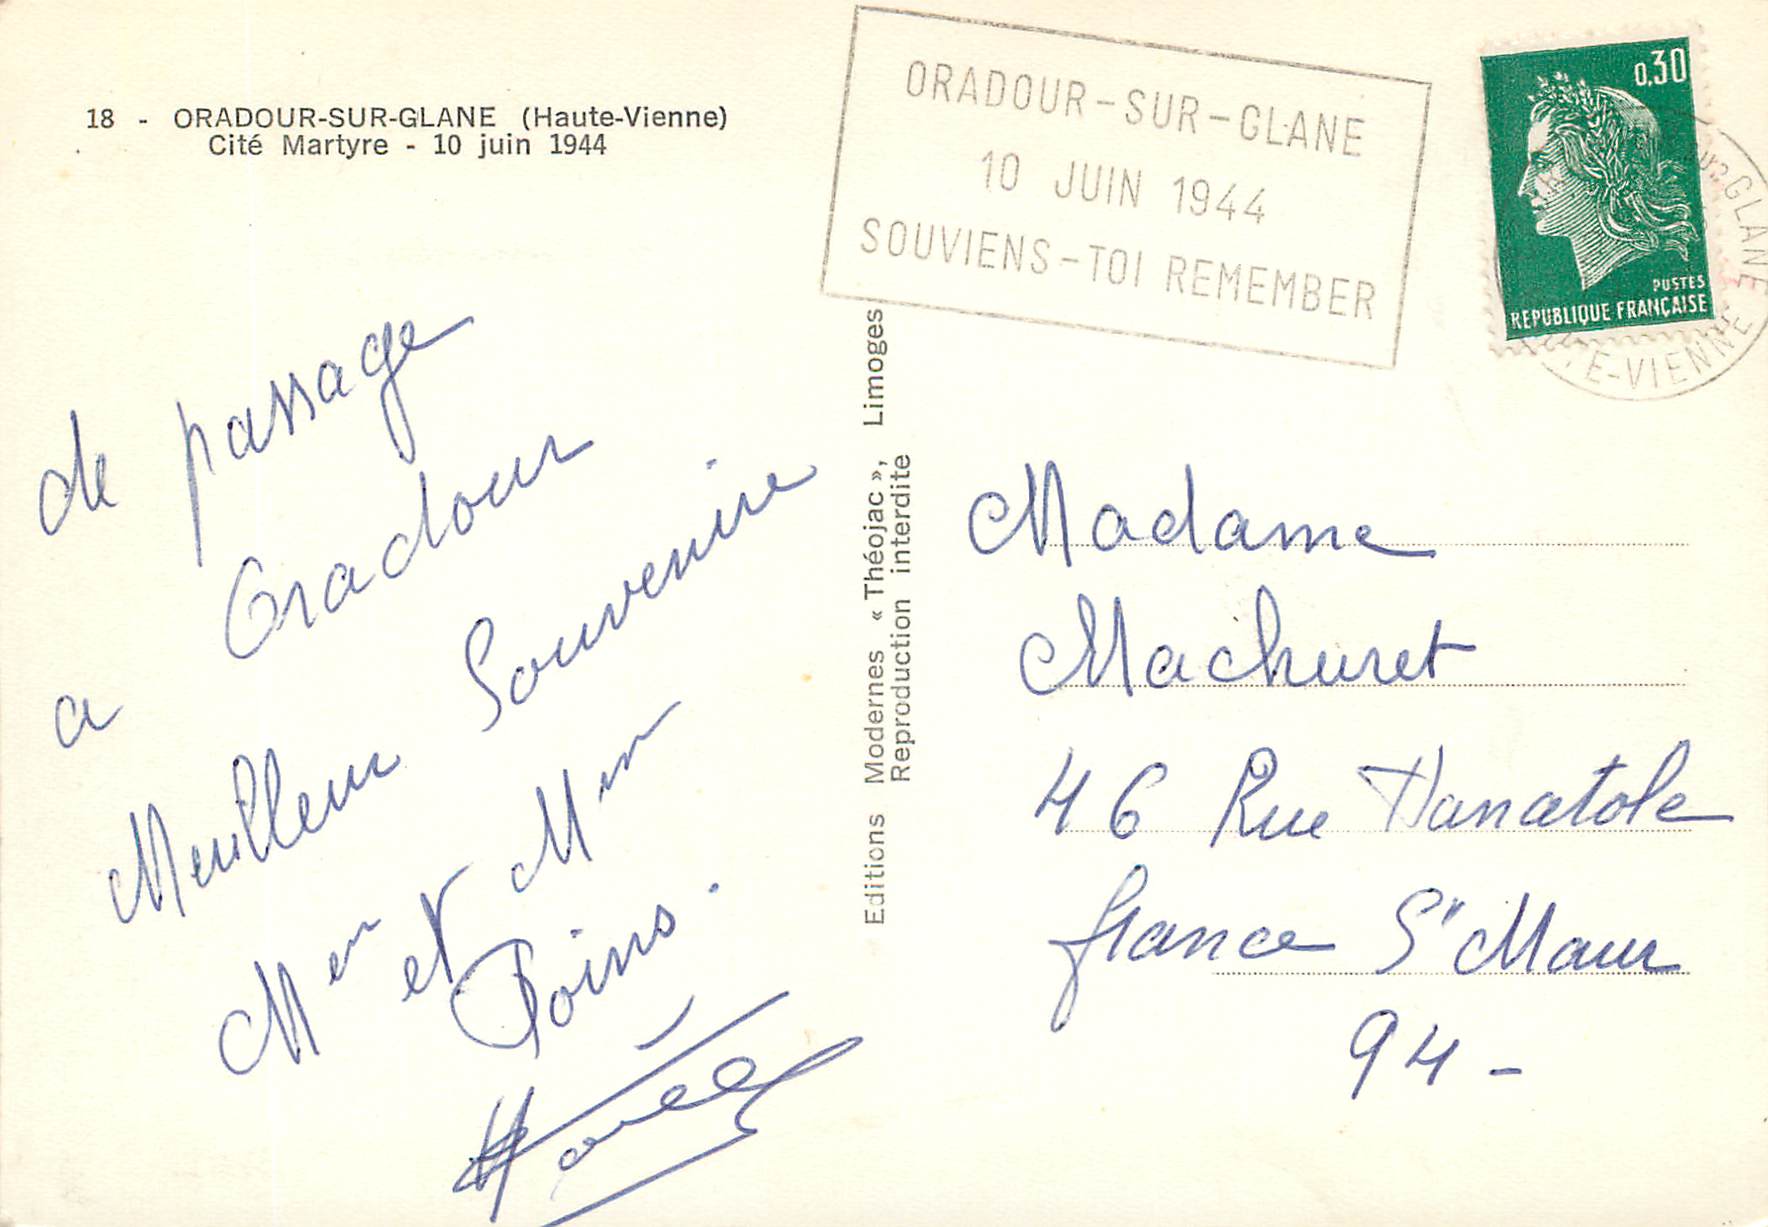 18 - ORADOUR-SUR-GLANE (Haute-Vienne)
Cité Martyre - 10 juin 1944
ORADOUR-SUR-GLANE
10 JUIN 1944
SOUVIENS-TOI REMEMBER
0,30
POSTES
REPUBLIQUE FRANÇAISE
GLANE
E-VIENNE
de passage
a Oradour
Meuilleur Souvenire
Mer et Mer
Poins.
Editions Modernes « Théojac », Limoges
Reproduction interdite
Madame
Machuret
46 Rue Danatole
france St Maur
94 -